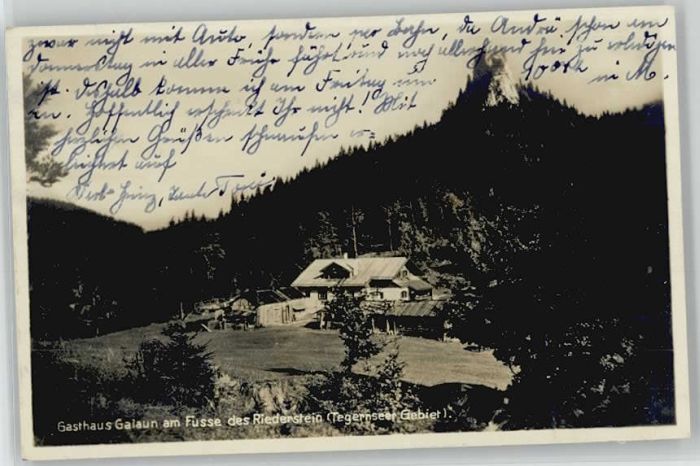 zwar nicht mit Auto, sondern per Bahn, da Andrä schon am
Donnerstag in aller Früh fährt und noch allerhand hier zu erledigen
ist. Deshalb komme ich am Freitag um
1000h in M.
an. Hoffentlich erschreckt Ihr nicht! Mit
herzlichen Grüßen
auf
Tante
Gasthaus Galaun am Fusse des Riederstein (Tegernseer Gebiet).